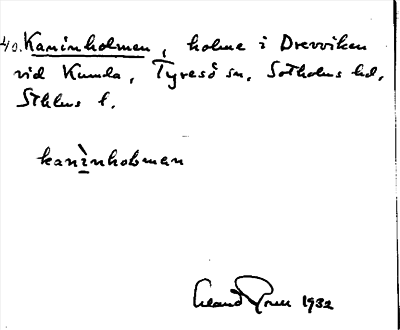 40. Kaninholmen, holme i Drevviken
vid Kumla, Tyresö sn, Sotholms hd,
Sthlms l.
kanìnholman
1932